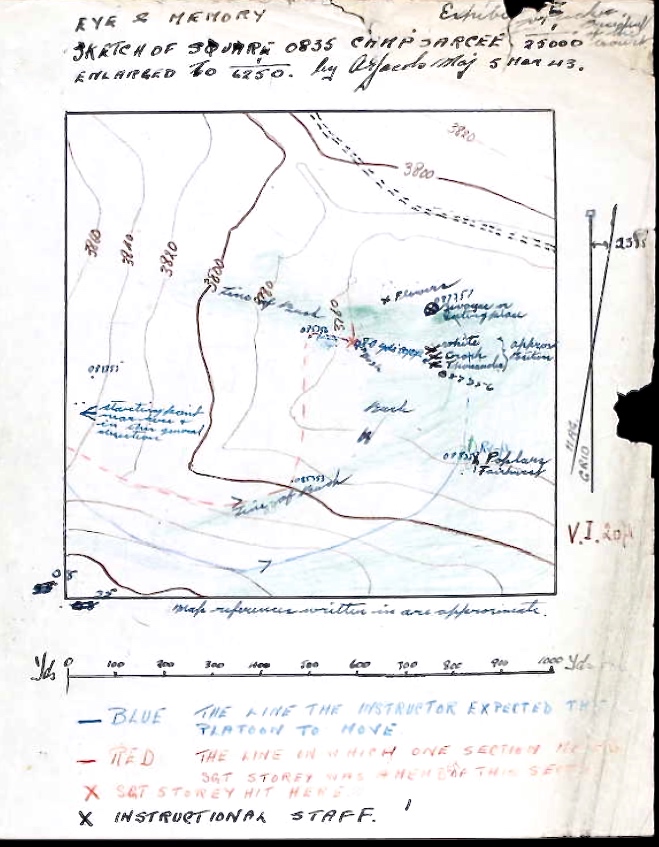 EYE & MEMORY
SKETCH OF SQUARE 0835 CAMP SARCEE 1/25000
ENLARGED TO 1/6250. by Maj 5 Mar 43.
3820
3800
3860
3840
3820
3800
3780
3760
Line of Bush
Flowers
087351
eating place
white
Couch
Thousands
approx
position
Bush
starting point
near here &
in this general
direction
Poplars
Fairhurst
Line of Bush
MAG.
GRID
V.I. 20ft
08
35
Map references written in are approximate.
Yds 0 100 200 300 400 500 600 700 800 900 1000 Yds
— BLUE THE LINE THE INSTRUCTOR EXPECTED
PLATOON TO MOVE
— RED THE LINE IN WHICH ONE SECTION
SGT STOREY WAS A MEMBER OF THIS
X SGT STOREY HIT HERE
X INSTRUCTIONAL STAFF.